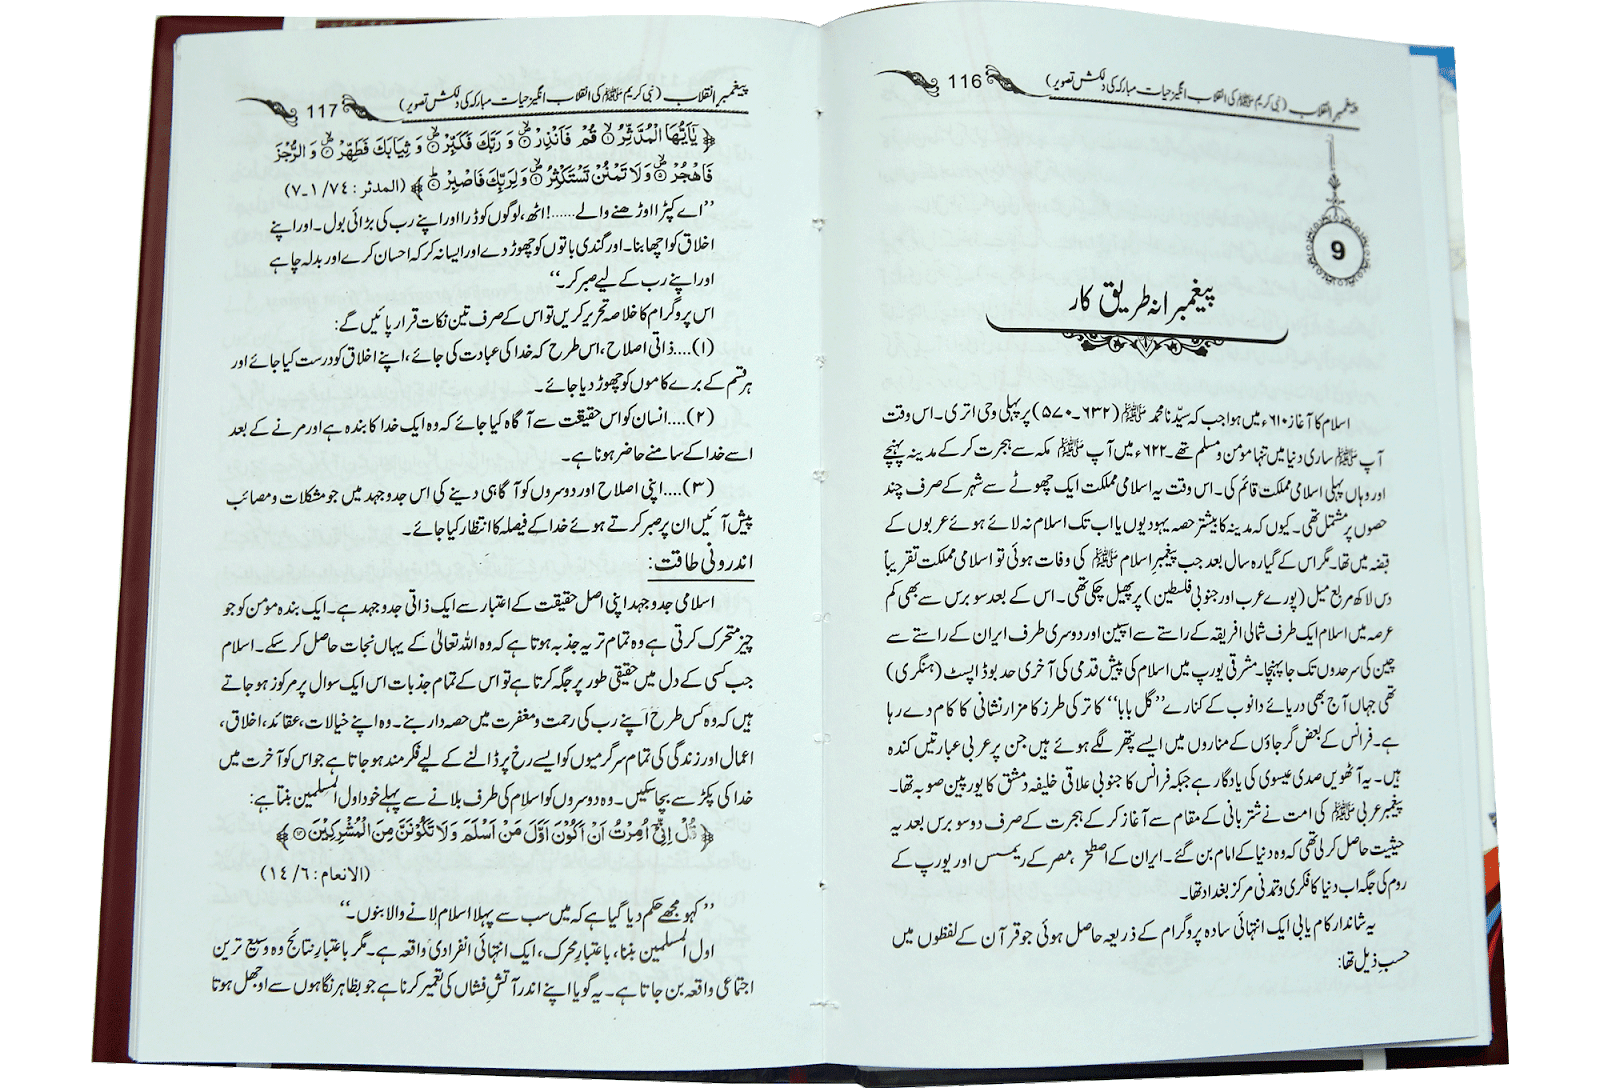 پیغمبرِ انقلاب (نبی کریم ﷺ کی انقلاب انگیز حیات مبارکہ کی دلکش تصویر) 116
9
پیغمبرانہ طریق کار
اسلام کا آغاز ۶۱۰ء میں ہوا جب کہ سیّدنا محمد ﷺ (۶۳۲۔۵۷۰) پر پہلی وحی اتری۔ اس وقت
آپ ﷺ ساری دنیا میں تنہا مؤمن و مسلم تھے۔ ۶۲۲ء میں آپ ﷺ مکہ سے ہجرت کر کے مدینہ پہنچے
اور وہاں پہلی اسلامی مملکت قائم کی۔ اس وقت یہ اسلامی مملکت ایک چھوٹے سے شہر کے صرف چند
حصوں پر مشتمل تھی۔ کیوں کہ مدینہ کا بیشتر حصہ یہودیوں یا اب تک اسلام نہ لائے ہوئے عربوں کے
قبضہ میں تھا۔ مگر اس کے گیارہ سال بعد جب پیغمبرِ اسلام ﷺ کی وفات ہوئی تو اسلامی مملکت تقریباً
دس لاکھ مربع میل (پورے عرب اور جنوبی فلسطین) پر پھیل چکی تھی۔ اس کے بعد سو برس سے بھی کم
عرصہ میں اسلام ایک طرف شمالی افریقہ کے راستے سے اسپین اور دوسری طرف ایران کے راستے سے
چین کی سرحدوں تک جا پہنچا۔ مشرقی یورپ میں اسلام کی پیش قدمی کی آخری حد بوڈاپسٹ (ہنگری)
تھی جہاں آج بھی دریائے دانوب کے کنارے ”گل بابا“ کا ترکی طرز کا مزار نشانی کا کام دے رہا
ہے۔ فرانس کے بعض گرجاؤں کے مناروں میں ایسے پتھر لگے ہوئے ہیں جن پر عربی عبارتیں کندہ
ہیں۔ یہ آٹھویں صدی عیسوی کی یادگار ہے جبکہ فرانس کا جنوبی علاقی خلیفہ دمشق کا یورپین صوبہ تھا۔
پیغمبر عربی ﷺ کی امت نے شتربانی کے مقام سے آغاز کر کے ہجرت کے صرف دو سو برس بعد یہ
حیثیت حاصل کر لی تھی کہ وہ دنیا کے امام بن گئے۔ ایران کے اصطخر، مصر کے ریمسس اور یورپ کے
روم کی جگہ اب دنیا کا فکری و تمدنی مرکز بغداد تھا۔
یہ شاندار کامیابی ایک انتہائی سادہ پروگرام کے ذریعہ حاصل ہوئی جو قرآن کے لفظوں میں
حسبِ ذیل تھا:
پیغمبرِ انقلاب (نبی کریم ﷺ کی انقلاب انگیز حیات مبارکہ کی دلکش تصویر) 117
﴿ یٰۤاَیُّهَا الْمُدَّثِّرُ ۙ۱ قُمْ فَاَنْذِرْ ۪ۙ۲ وَ رَبَّكَ فَكَبِّرْ ۪ۙ۳ وَ ثِیَابَكَ فَطَهِّرْ ۪ۙ۴ وَ الرُّجْزَ
فَاهْجُرْ ۪ۙ۵ وَ لَا تَمْنُنْ تَسْتَكْثِرُ ۪ۙ۶ وَ لِرَبِّكَ فَاصْبِرْ ؕ۷ ﴾ (المدثر: ۷۴/ ۱۔۷)
”اے کپڑا اوڑھنے والے......! اٹھ، لوگوں کو ڈرا اور اپنے رب کی بڑائی بول۔ اور اپنے
اخلاق کو اچھا بنا۔ اور گندی باتوں کو چھوڑ دے اور ایسا نہ کر کہ احسان کرے اور بدلہ چاہے
اور اپنے رب کے لیے صبر کر۔“
اس پروگرام کا خلاصہ تحریر کریں تو اس کے صرف تین نکات قرار پائیں گے:
(۱)....ذاتی اصلاح، اس طرح کہ خدا کی عبادت کی جائے، اپنے اخلاق کو درست کیا جائے اور
ہر قسم کے برے کاموں کو چھوڑ دیا جائے۔
(۲)....انسان کو اس حقیقت سے آگاہ کیا جائے کہ وہ ایک خدا کا بندہ ہے اور مرنے کے بعد
اسے خدا کے سامنے حاضر ہونا ہے۔
(۳)....اپنی اصلاح اور دوسروں کو آگاہی دینے کی اس جدوجہد میں جو مشکلات و مصائب
پیش آئیں ان پر صبر کرتے ہوئے خدا کے فیصلہ کا انتظار کیا جائے۔
اندرونی طاقت:
اسلامی جدوجہد اپنی اصل حقیقت کے اعتبار سے ایک ذاتی جدوجہد ہے۔ ایک بندہ مؤمن کو جو
چیز متحرک کرتی ہے وہ تمام تر یہ جذبہ ہوتا ہے کہ وہ اللہ تعالیٰ کے یہاں نجات حاصل کر سکے۔ اسلام
جب کسی کے دل میں حقیقی طور پر جگہ کرتا ہے تو اس کے تمام جذبات اس ایک سوال پر مرکوز ہو جاتے
ہیں کہ وہ کس طرح اپنے رب کی رحمت و مغفرت میں حصہ دار بنے۔ وہ اپنے خیالات، عقائد، اخلاق،
اعمال اور زندگی کی تمام سرگرمیوں کو ایسے رخ پر ڈالنے کے لیے فکرمند ہو جاتا ہے جو اس کو آخرت میں
خدا کی پکڑ سے بچا سکیں۔ وہ دوسروں کو اسلام کی طرف بلانے سے پہلے خود اول المسلمین بنتا ہے:
﴿ قُلْ اِنِّیْۤ اُمِرْتُ اَنْ اَكُوْنَ اَوَّلَ مَنْ اَسْلَمَ وَ لَا تَكُوْنَنَّ مِنَ الْمُشْرِكِیْنَ ۱۴ ﴾
(الانعام: ۶/ ۱۴)
”کہو مجھے حکم دیا گیا ہے کہ میں سب سے پہلا اسلام لانے والا بنوں۔“
اول المسلمین بننا، باعتبارِ محرک، ایک انتہائی انفرادی واقعہ ہے۔ مگر باعتبارِ نتائج وہ وسیع ترین
اجتماعی واقعہ بن جاتا ہے۔ یہ گویا اپنے اندر آتش فشاں کی تعمیر کرنا ہے جو بظاہر نگاہوں سے اوجھل ہوتا